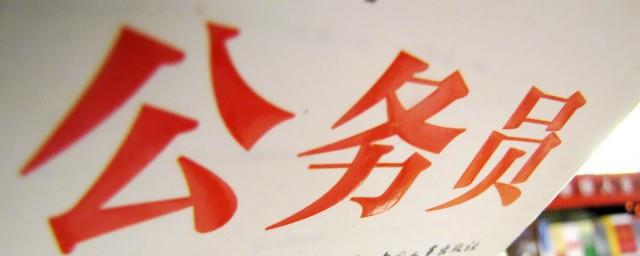 公务员